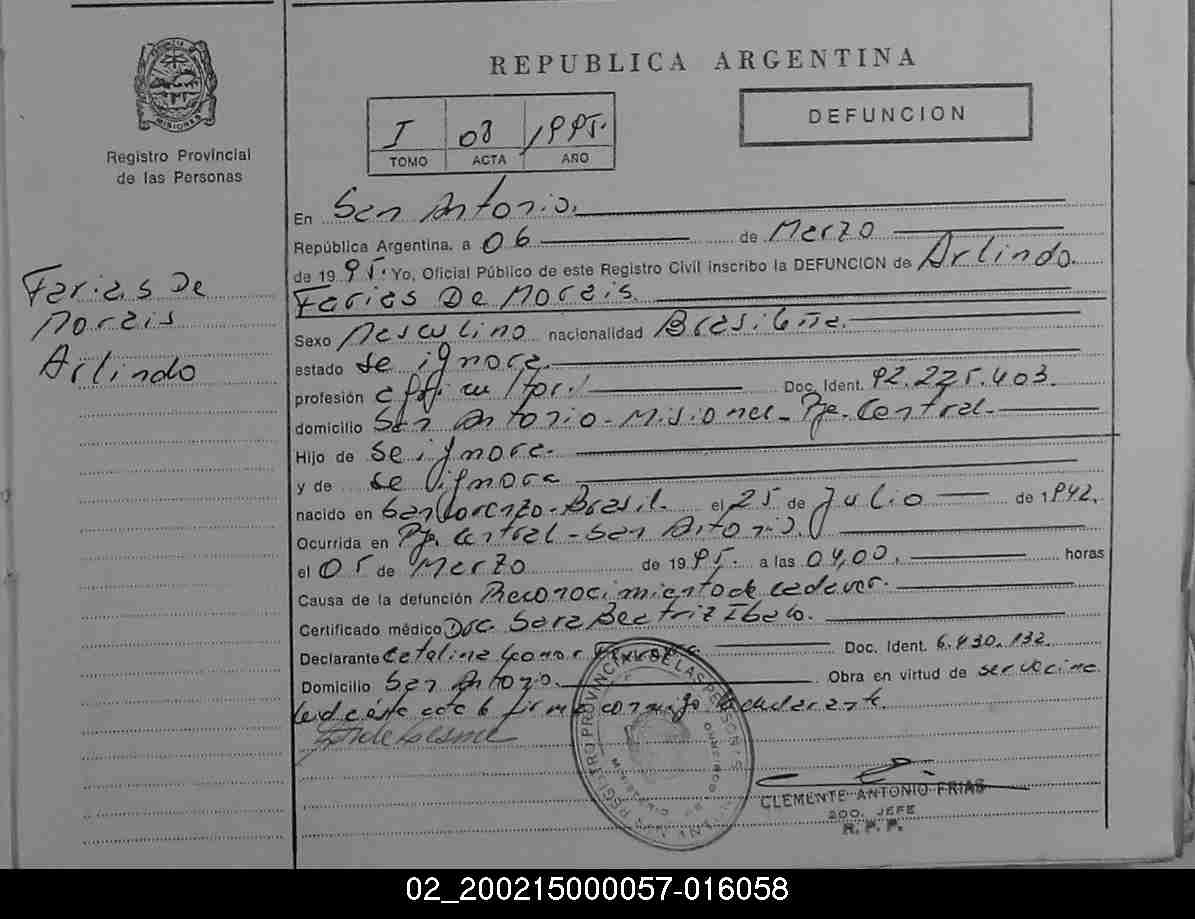 REPUBLICA ARGENTINA
MISIONES
Registro Provincial
de las Personas
I 08 1995.
TOMO ACTA AÑO
DEFUNCION
Farias De
Morais
Arlindo
En San Antonio.
República Argentina, a 06 de Marzo
de 1995. Yo, Oficial Público de este Registro Civil inscribo la DEFUNCION de Arlindo
Farias De Morais.
Sexo Masculino nacionalidad Brasileña.
estado se ignora.
profesión agricultor. Doc. Ident. 92.225.403.
domicilio San Antonio - Misiones - Pje. Central -
Hijo de se ignora.
y de se ignora
nacido en San Lorenzo - Brasil. el 25 de Julio de 1942.
Ocurrida en Pje. Central - San Antonio.
el 05 de Marzo de 1995. a las 04,00. horas
Causa de la defunción Reconocimiento de cadaver.
Certificado médico Dra. Sara Beatriz
Declarante Catalina Doc. Ident. 6.430.132.
Domicilio San Antonio. Obra en virtud de ser vecina
firma conmigo
REGISTRO PROVINCIAL DE LAS PERSONAS
CLEMENTE ANTONIO FRIAS
2DO. JEFE
R. P. P.
02_200215000057-016058